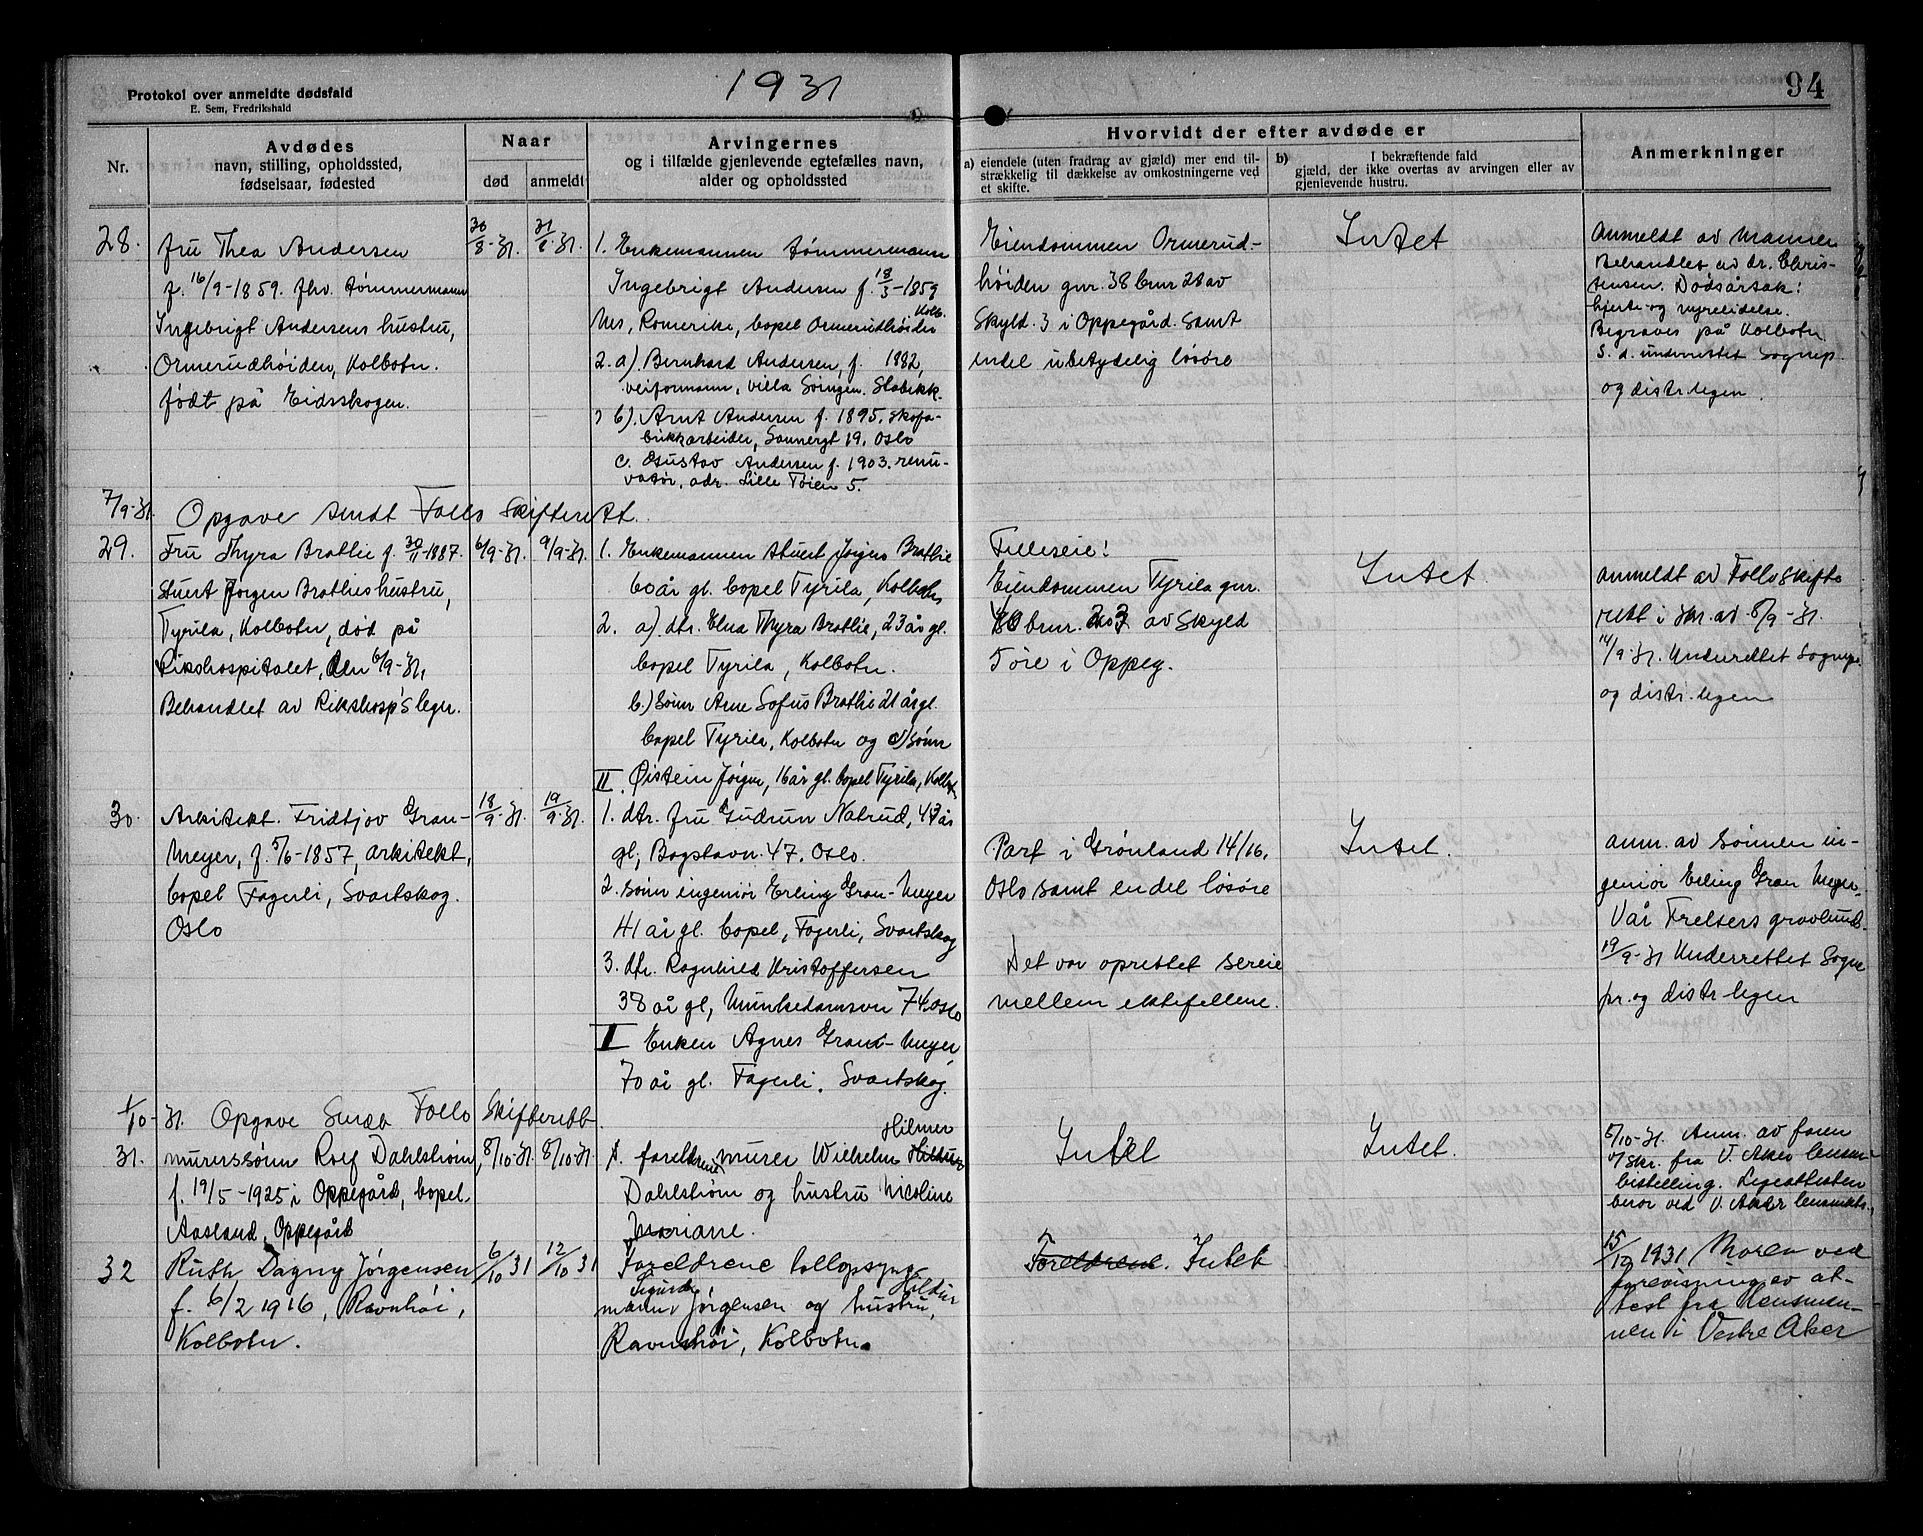 1931
94
Protokol over anmeldte dødsfald
E. Sem, Fredrikshald
Nr.
Avdødes
navn, stilling, opholdssted,
fødselsaar, fødested
Naar
død
anmeldt
Arvingernes
og i tilfælde gjenlevende egtefælles navn,
alder og opholdssted
Hvorvidt der efter avdøde er
a) eiendele (uten fradrag av gjæld) mer end til-
strækkelig til dækkelse av omkostningerne ved
et skifte.
b) I bekræftende fald
gjæld, der ikke overtas av arvingen eller av
gjenlevende hustru.
Anmerkninger
28.
Fru Thea Andersen
f. 16/9-1859. fhv. tømmermann
Ingebrigt Andersens hustru,
Ormerudhøiden, Kolbotn.
født på Eidsskogen.
30/8-31.
31/8-31.
1. Enkemannen tømmermann
Ingebrigt Andersen f. 18/3-1859
Nes, Romerike, bopel Ormerudhøiden
Kolb.
2. a) Bernhard Andersen, f. 1882,
veiformann, villa Solingen. Stabekk.
b). Arnt Andersen f. 1895. Skofa-
brikkarbeider, Sannergt 19, Oslo
c. Gustav Andersen f. 1903. renu-
vatør, adr. Lille Tøien 5.
Eiendommen Ormerud-
høiden gnr. 38 bnr 28 av
Skyld. 3 i Oppegård. Samt
endel ubetydelig løsøre
Intet
Anmeldt av Mannen
Behandlet av dr. Chris-
tensen. Dødsårsak:
hjerte og nyrelidelse.
Begraves på Kolbotn
S. d. underrettet Sognep.
og distr. legen.
7/9-31. Opgave sendt Follo Skifterett.
29.
Fru Thyra Bratlie f. 30/11-1887.
Stuert Jørgen Bratlies hustru,
Tyrila, Kolbotn, død på
Rikshospitalet, den 6/9-31,
Behandlet av Rikshosp's leger.
6/9-31.
9/9-31.
1. Enkemannen stuert Jørgen Bratlie
60 år gl. bopel Tyrila, Kolbotn
2. a) dtr. Elna Thyra Bratlie, 23 år gl.
bopel Tyrila, Kolbotn.
b.) Sønn Arne Sofus Bratlie 21 år gl.
bopel Tyrila, Kolbotn og c) sønn
II. Øistein Jørgen, 16 år gl. bopel Tyrila, Kolbotn
Felleseie!
Eiendommen Tyrila gnr.
bnr. av Skyld
5 øre i Oppeg.
Intet.
Anmeldt av Follo Skifte
rett i skr. av 8/9-31.
14/9-31. Underrettet Sognepr.
og distr. legen
30.
Arkitekt. Fridtjov Gran-
Meyer, f. 5/6-1857, arkitekt,
bopel Fagerli, Svartskog.
Oslo
18/9-31.
19/9-31.
1. dtr. fru Gudrun Natrud, 47 år
gl, Bogstadvn. 47. Oslo.
2. sønn ingeniør Erling Gran-Meyer
41 år gl. bopel, Fagerli, Svartskog
3. dtr. Ragnhild Kristoffersen
38 år gl, Munkedamsvn 74. Oslo
II Enken Agnes Gran-Meyer,
70 år gl. Fagerli. Svartskog.
Part i Grønland 14/16.
Oslo samt en del løsøre
Det var oprettet særeie
mellem ektefellene.
Intet.
anm. av sønnen in-
geniør Erling Gran Meyer.
Vår Frelsers gravlund.
19/9-31 Underrettet Sogne
pr. og distr. legen
1/10-31. Opgave Sendt Follo Skifterett.
31.
murerssønn Rolf Dahlstrøm,
f. 19/5-1925 i Oppegård, bopel.
Aasland, Oppegård
8/10-31.
8/10-31
1. foreldrene murer Wilhelm Hilmer
Dahlstrøm og hustru Nicoline
Mariane.
Intet
Intet.
5/10-31. Anm. av faren
v/skr. fra V. Aker lensm-
bestilling. Legeattesten
beror ved V. Aker lensmkt.
32
Ruth Dagny Jørgensen
f. 6/2 1916, Ravnhøi,
Kolbotn.
6/10 31
12/10 31
Foreldrene
mann Sigurd Jørgensen og hustru,
Ravnhøi, Kolbotn.
Foreldrene. Intet
15/10 1931 Moren ved
forevisning av at-
test fra lensmen-
nen i Vestre Aker